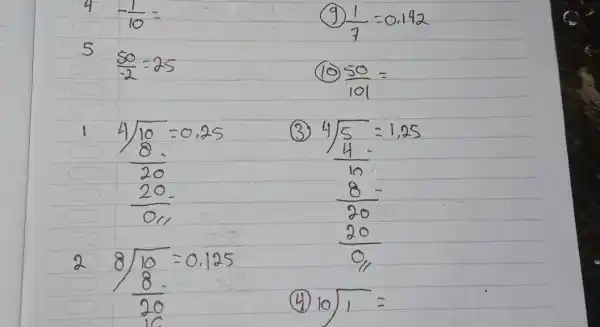 4 -1/10 =
5 50/-2 = 25
⑨ 1/7 = 0,142
⑩ 50/101 =
1 4√10 = 0,25
8 -
20
20 -
0 //
2 8√10 = 0,125
8 -
20
16
③ 4√5 = 1,25
4 -
10
8 -
20
20
0 //
④ 10√1 =